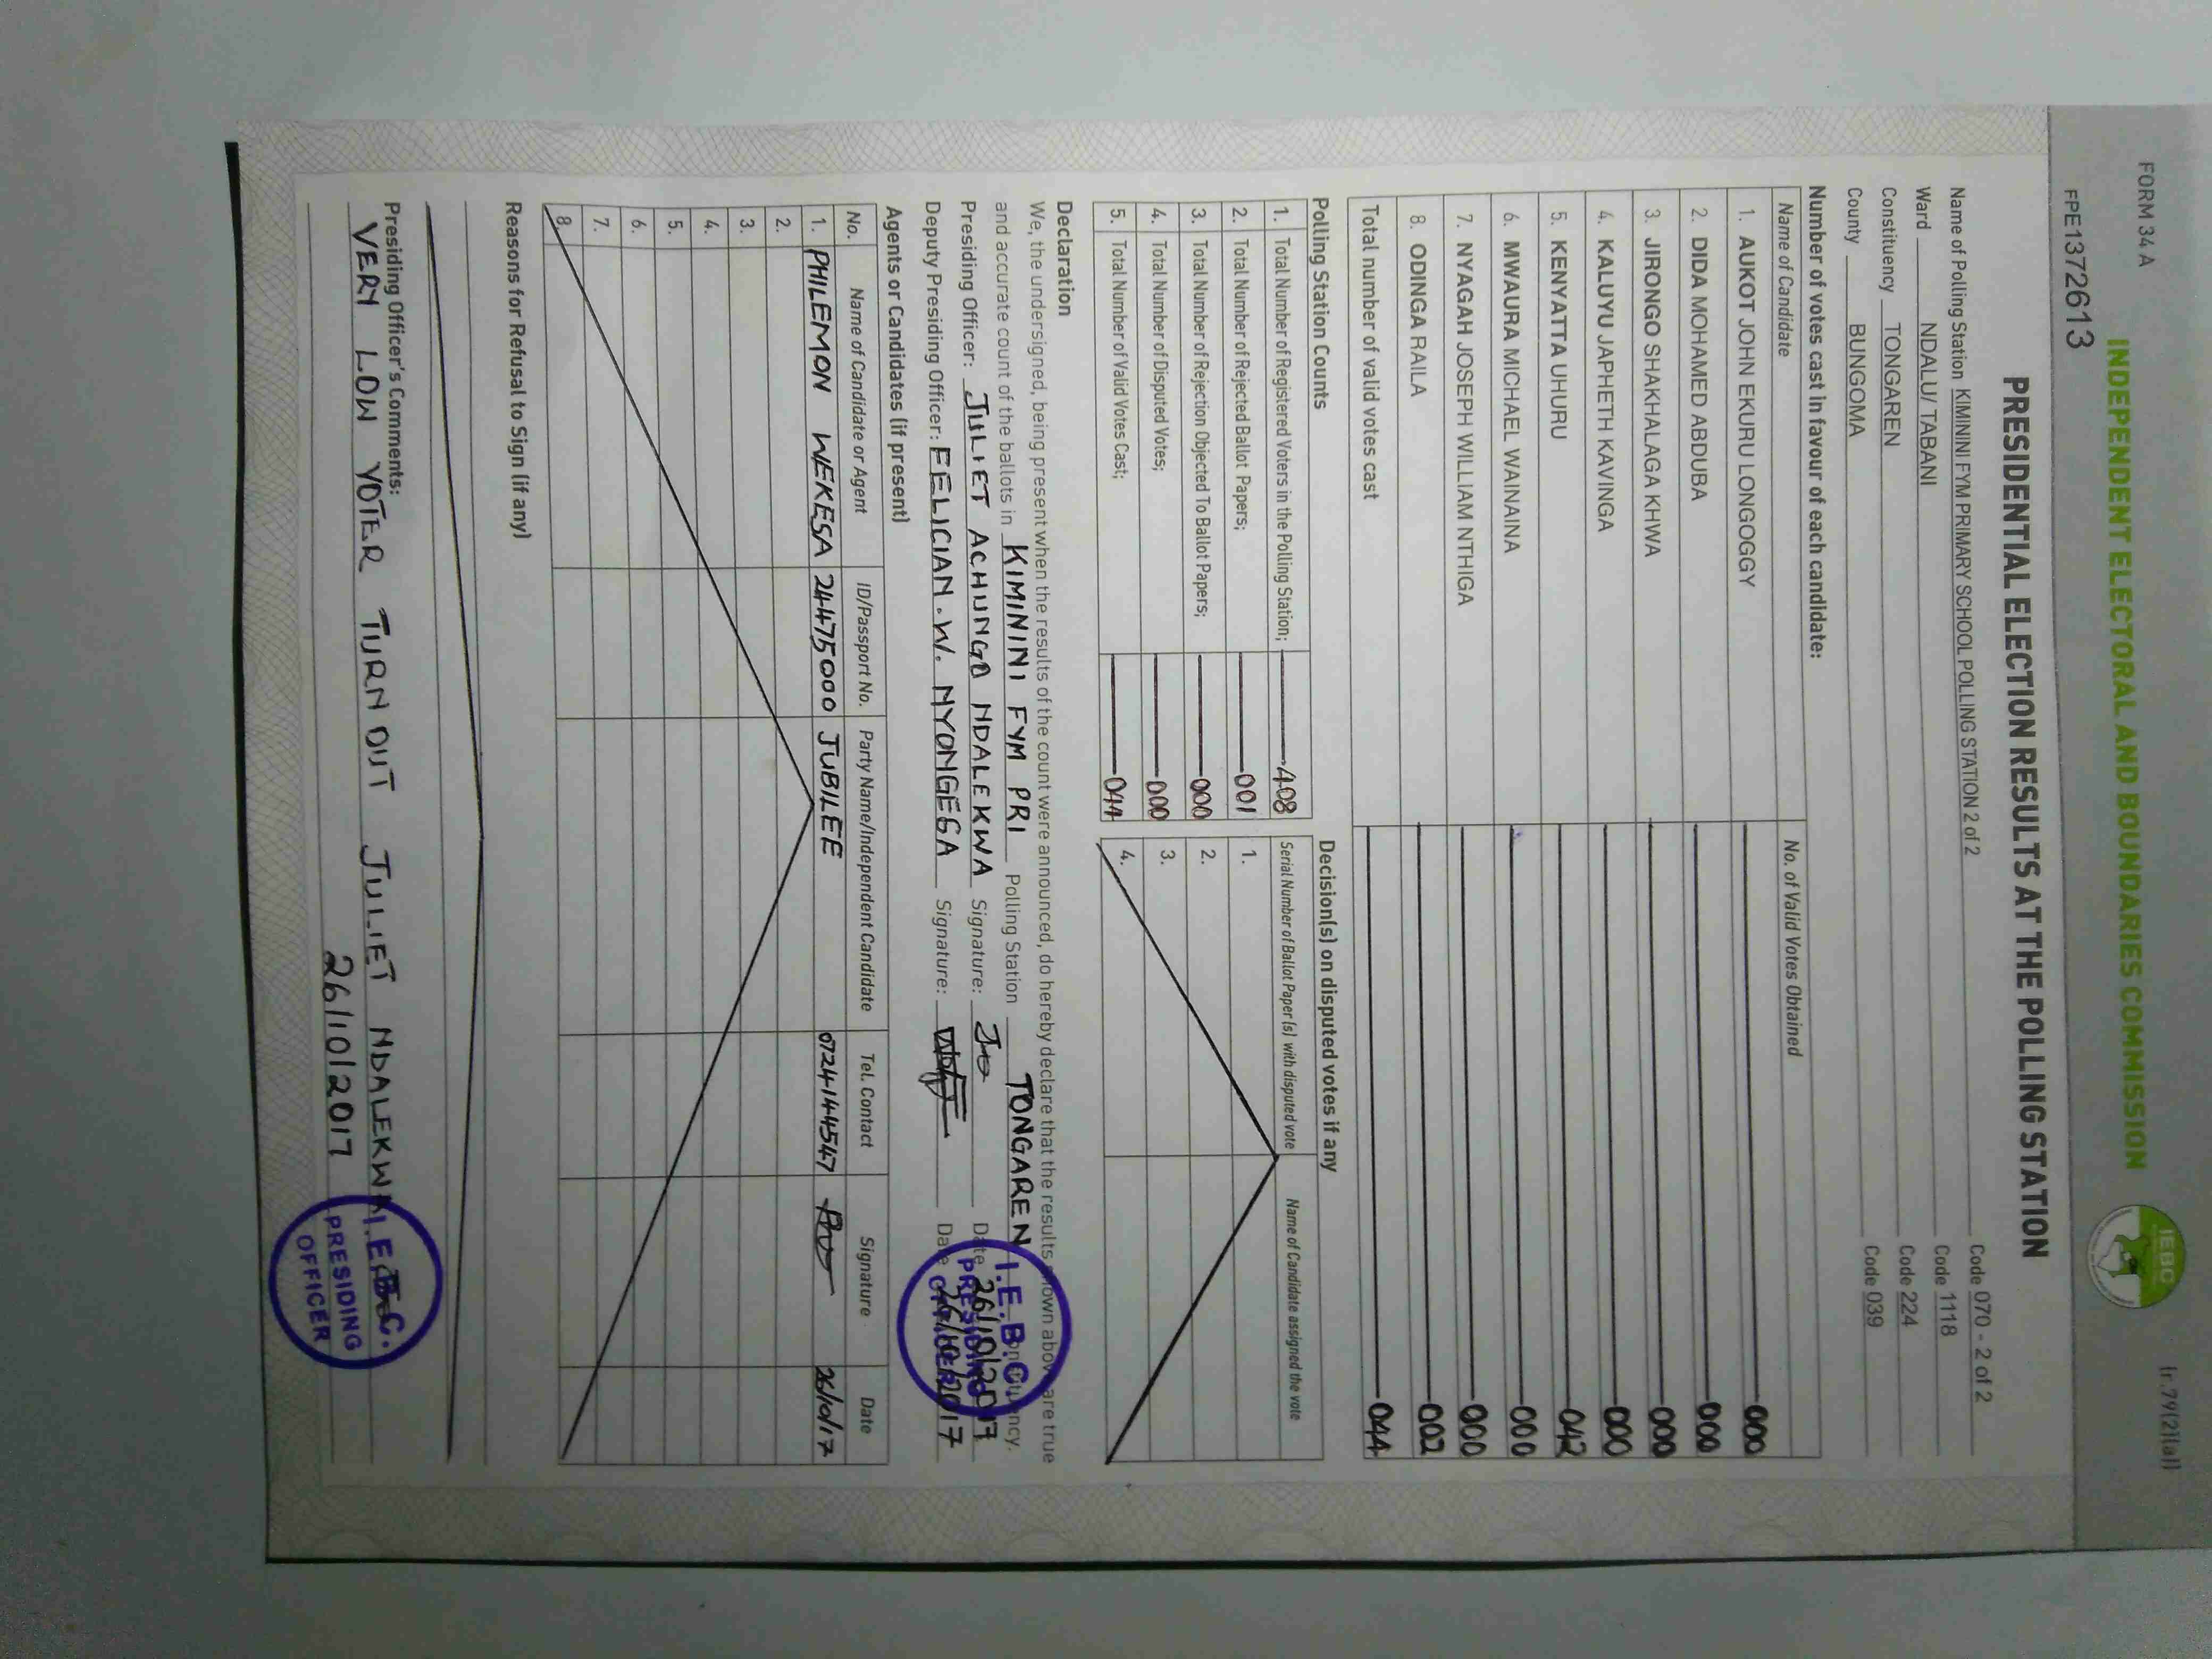 FORM 34 A
[r.79(2)(a)]
INDEPENDENT ELECTORAL AND BOUNDARIES COMMISSION
IEBC
FPE1372613
PRESIDENTIAL ELECTION RESULTS AT THE POLLING STATION
Name of Polling Station KIMININI FYM PRIMARY SCHOOL POLLING STATION 2 of 2 Code 070 - 2 of 2
Ward NDALU/ TABANI Code 1118
Constituency TONGAREN Code 224
County BUNGOMA Code 039
Number of votes cast in favour of each candidate:
Name of Candidate No. of Valid Votes Obtained
1. AUKOT JOHN EKURU LONGOGGY 000
2. DIDA MOHAMED ABDUBA 000
3. JIRONGO SHAKHALAGA KHWA 000
4. KALUYU JAPHETH KAVINGA 000
5. KENYATTA UHURU 042
6. MWAURA MICHAEL WAINAINA 000
7. NYAGAH JOSEPH WILLIAM NTHIGA 000
8. ODINGA RAILA 002
Total number of valid votes cast 044
Polling Station Counts
1. Total Number of Registered Voters in the Polling Station; 408
2. Total Number of Rejected Ballot Papers; 001
3. Total Number of Rejection Objected To Ballot Papers; 000
4. Total Number of Disputed Votes; 000
5. Total Number of Valid Votes Cast; 044
Decision(s) on disputed votes if any
Serial Number of Ballot Paper (s) with disputed vote Name of Candidate assigned the vote
1.
2.
3.
4.
Declaration
We, the undersigned, being present when the results of the count were announced, do hereby declare that the results shown above are true
and accurate count of the ballots in KIMININI FYM PRI Polling Station TONGAREN Constituency.
Presiding Officer: JULIET ACHUNGO NDALEKWA Signature: Date 26/10/2017
Deputy Presiding Officer: FELICIAN . W. NYONGESA Signature: Date 26/10/2017
I.E.B.C.
PRESIDING
OFFICER
Agents or Candidates (if present)
No. Name of Candidate or Agent ID/Passport No. Party Name/Independent Candidate Tel. Contact Signature Date
1. PHILEMON WEKESA 24475000 JUBILEE 0724144547 26/10/17
2.
3.
4.
5.
6.
7.
8.
Reasons for Refusal to Sign (if any)
Presiding Officer's Comments:
VERY LOW VOTER TURN OUT JULIET NDALEKWA
26/10/2017
I.E.B.C.
PRESIDING
OFFICER